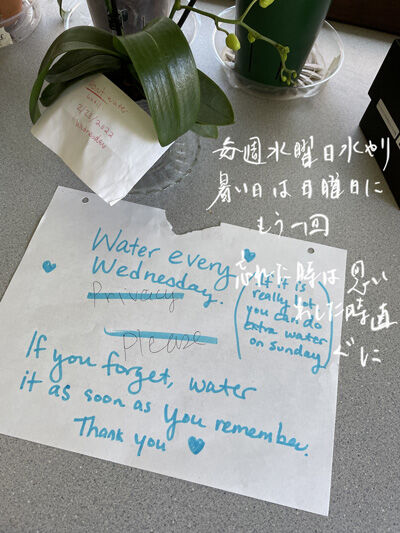 water
until
Wednesday
毎週水曜日水やり
暑い日は日曜日に
もう一回
忘れた時は思い
だした時直
ぐに
Water every
Wednesday.
Privacy
Please
(If it is
really hot
you can do
extra water
on Sunday)
If you forget, water
it as soon as you remember.
Thank you